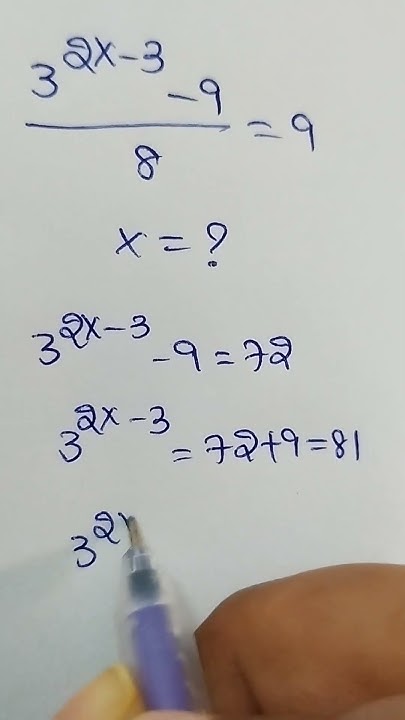 3^(2x-3) - 9
8
= 9
x = ?
3^(2x-3) - 9 = 72
3^(2x-3) = 72+9=81
3^2x